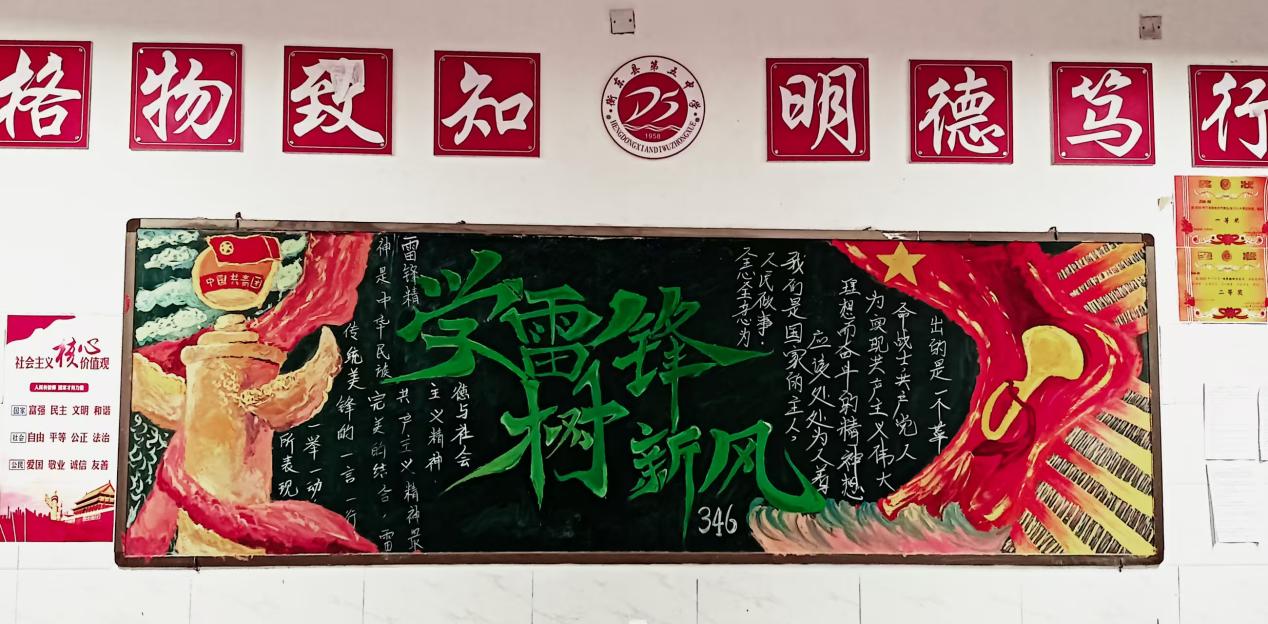 格物致知
衡东县第五中学
1958
HENGDONGXIANDIWUZHONGXUE
明德笃行
学雷锋
树新风
346
中国共青团
雷锋精
神是中华民族
传统美
德与社会
主义精神、
共产主义精神最
完美的结合，雷
锋的一言一行
一举一动
所表现
出的是一个革
命战士共产党人
为实现共产主义伟大
理想而奋斗的精神想
应该处处为人着
我们是国家的主人，
人民做事。
全心全意为
社会主义核心价值观
人民有信仰 国家才有力量
国家 富强 民主 文明 和谐
社会 自由 平等 公正 法治
公民 爱国 敬业 诚信 友善
奖状
一等奖
奖状
二等奖